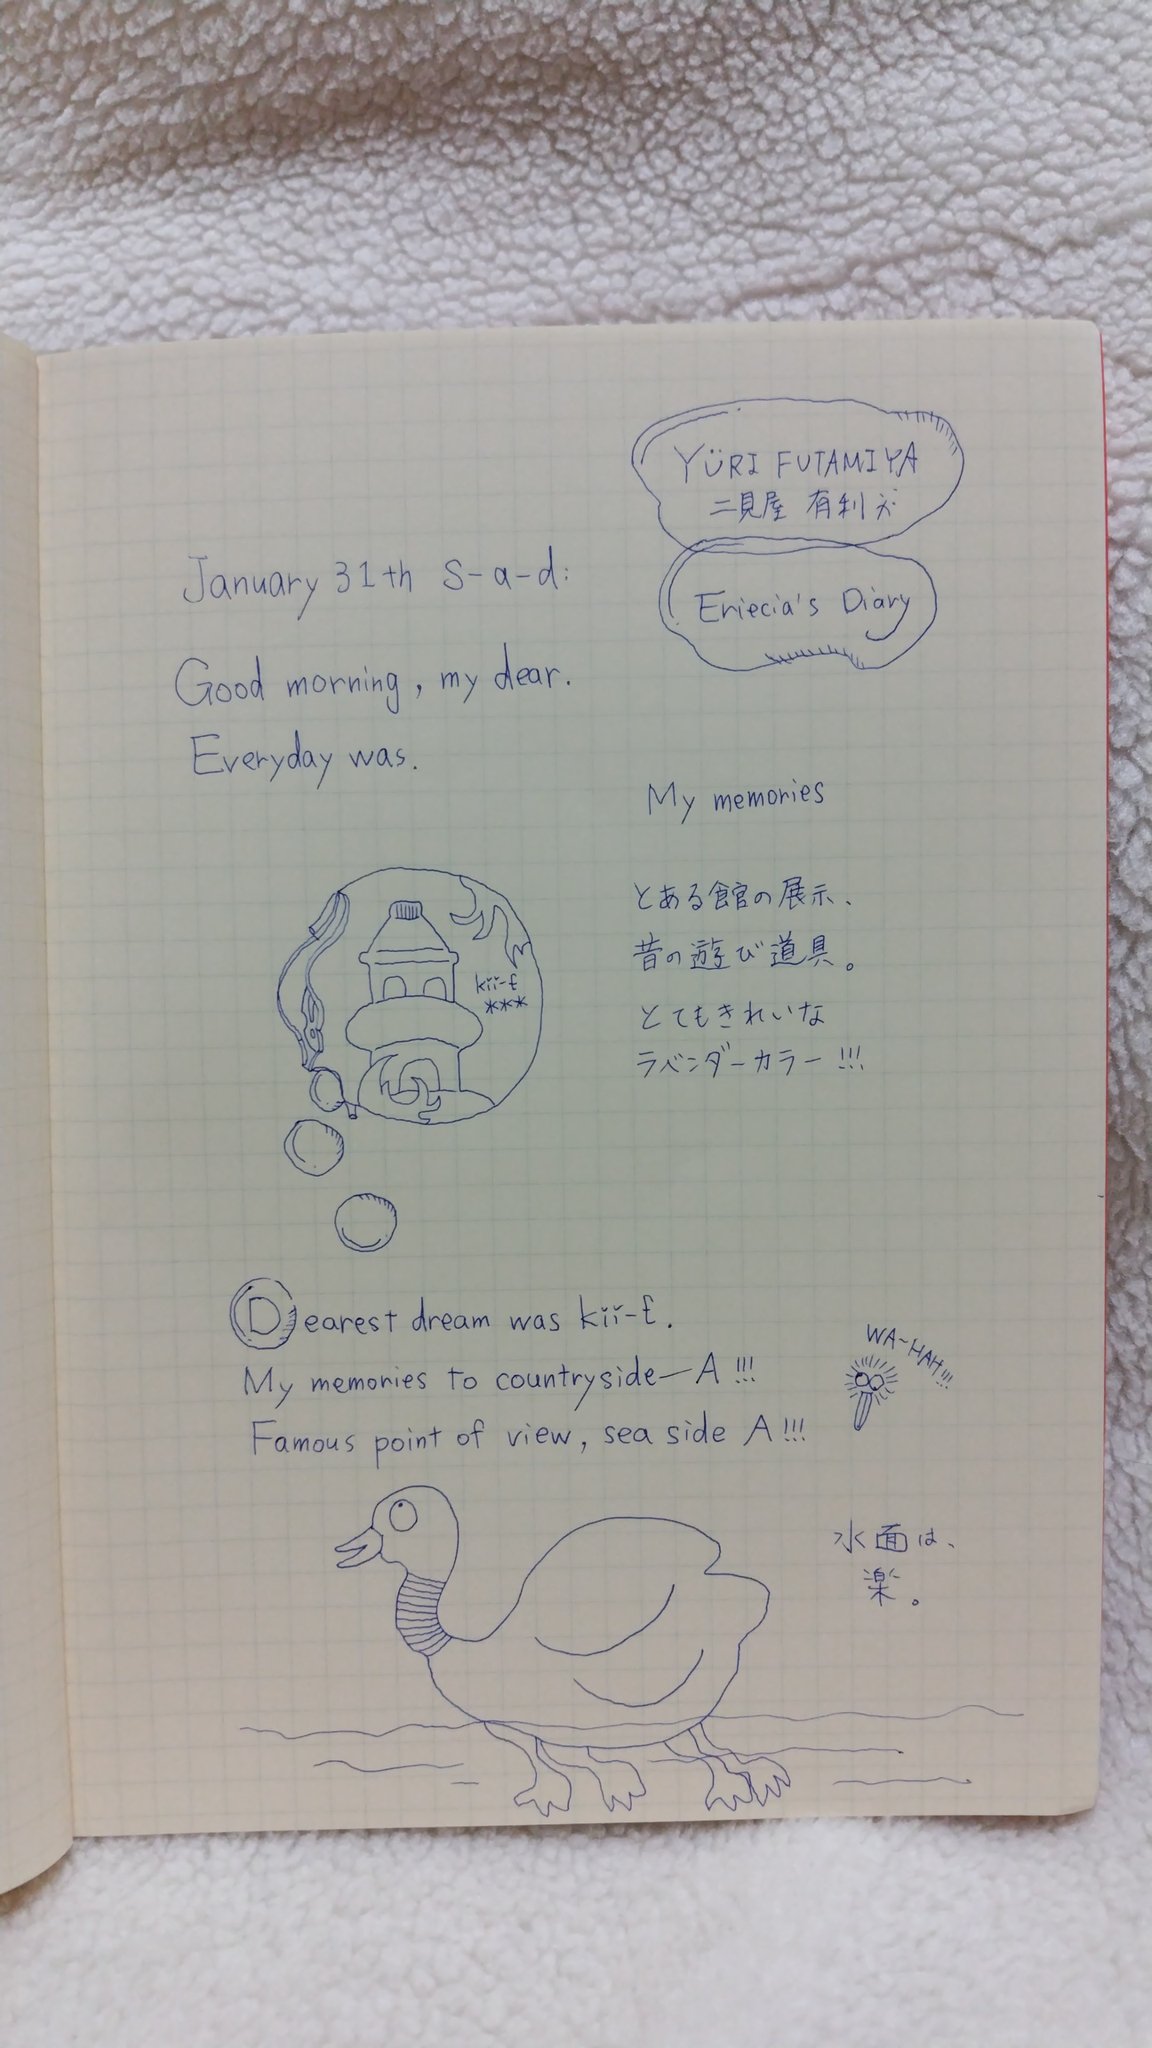 YÜRI FUTAMIYA
二見屋 有利
Eriecia's Diary
January 31th S-a-d:
Good morning, my dear.
Everyday was.
My memories
とある館の展示、
昔の遊び道具。
とてもきれいな
ラベンダーカラー!!!
kiǐ-t
***
Dearest dream was kiǐ-t.
My memories to countryside—A!!!
Famous point of view, sea side A!!!
WA~HAH!!!
水面は、
楽。